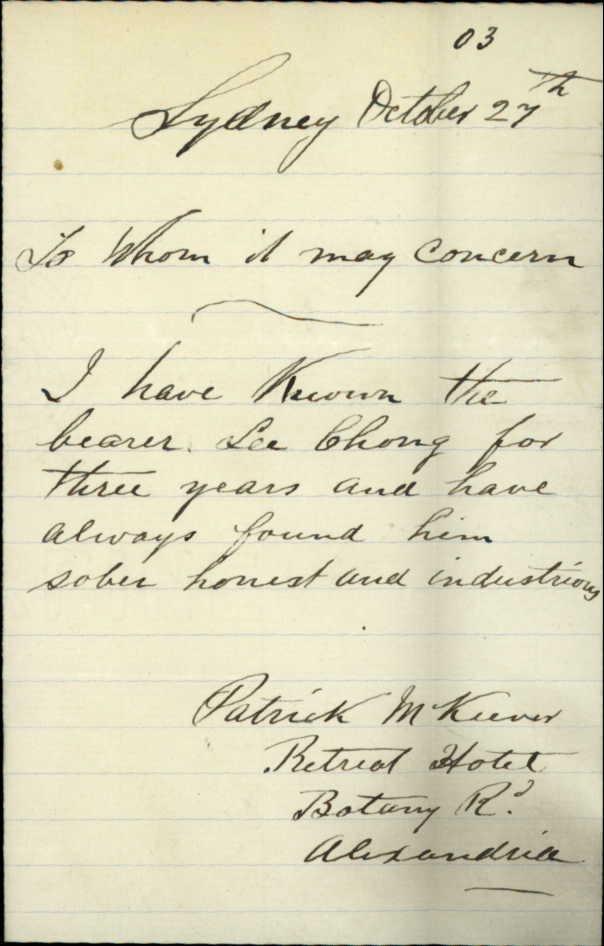 03
Sydney October 27th
To Whom it may concern
I have Known the
bearer. Lee Chong for
three years and have
always found him
sober honest and industrious
Patrick McKeever
Retreat Hotel
Botany Rd.
Alexandria